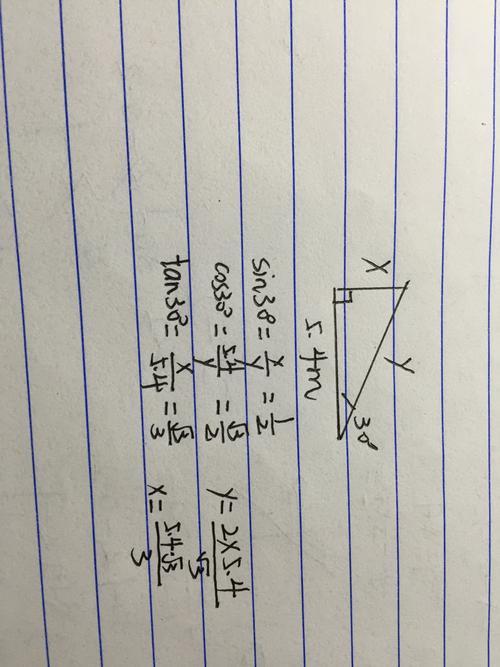 X
Y
5.4m
30°
sin30° = x/y = 1/2
cos30° = 5.4/y = √3/2 y = 2×5.4/√3
tan30° = x/5.4 = √3/3 x = 5.4·√3/3